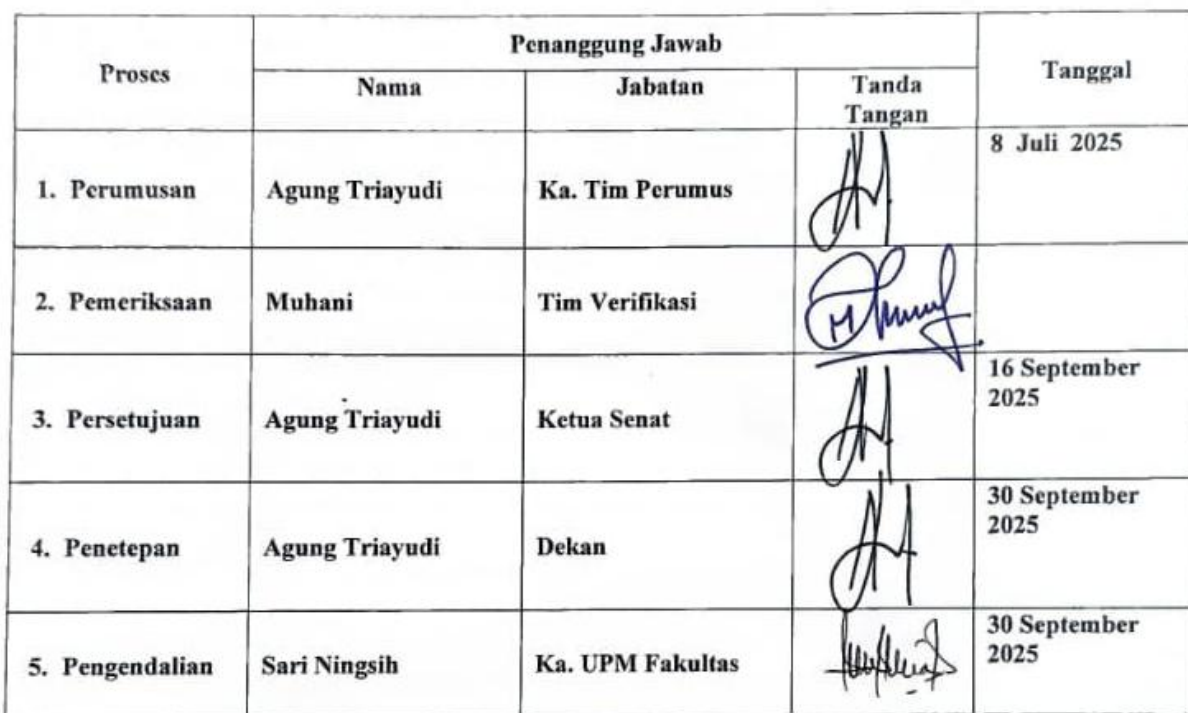 Proses
Penanggung Jawab
Tanggal
Nama
Jabatan
Tanda
Tangan
1. Perumusan
Agung Triayudi
Ka. Tim Perumus
8 Juli 2025
2. Pemeriksaan
Muhani
Tim Verifikasi
3. Persetujuan
Agung Triayudi
Ketua Senat
16 September
2025
4. Penetepan
Agung Triayudi
Dekan
30 September
2025
5. Pengendalian
Sari Ningsih
Ka. UPM Fakultas
30 September
2025